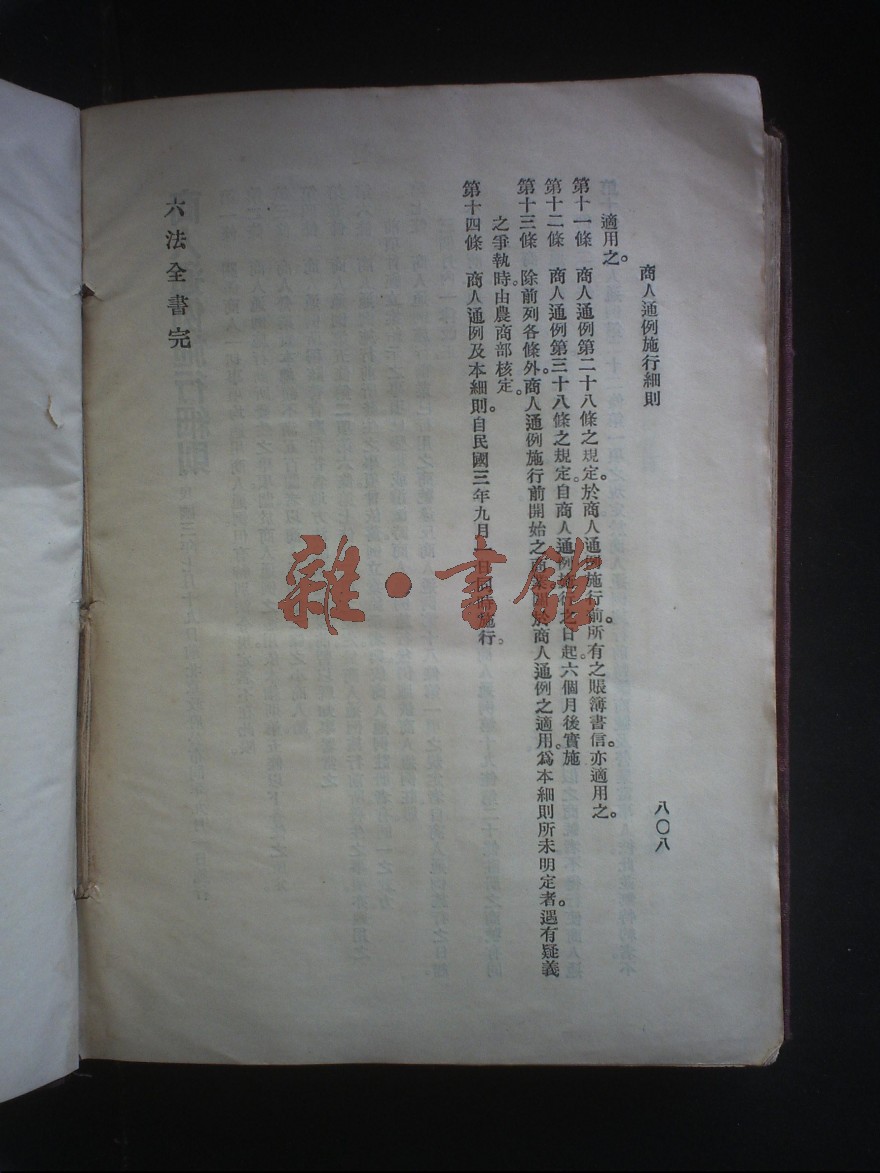 商人通例施行細則
八〇八
適用之。
第十一條　商人通例第二十八條之規定。於商人通例施行前所有之賬簿書信。亦適用之。
第十二條　商人通例第三十八條之規定。自商人通例施行之日起。六個月後實施
第十三條　除前列各條外。商人通例施行前開始之商業。關於商人通例之適用。爲本細則所未明定者。遇有疑義
之爭執時。由農商部核定。
第十四條　商人通例及本細則。自民國三年九月一日同時施行。
六法全書完
雜·書館